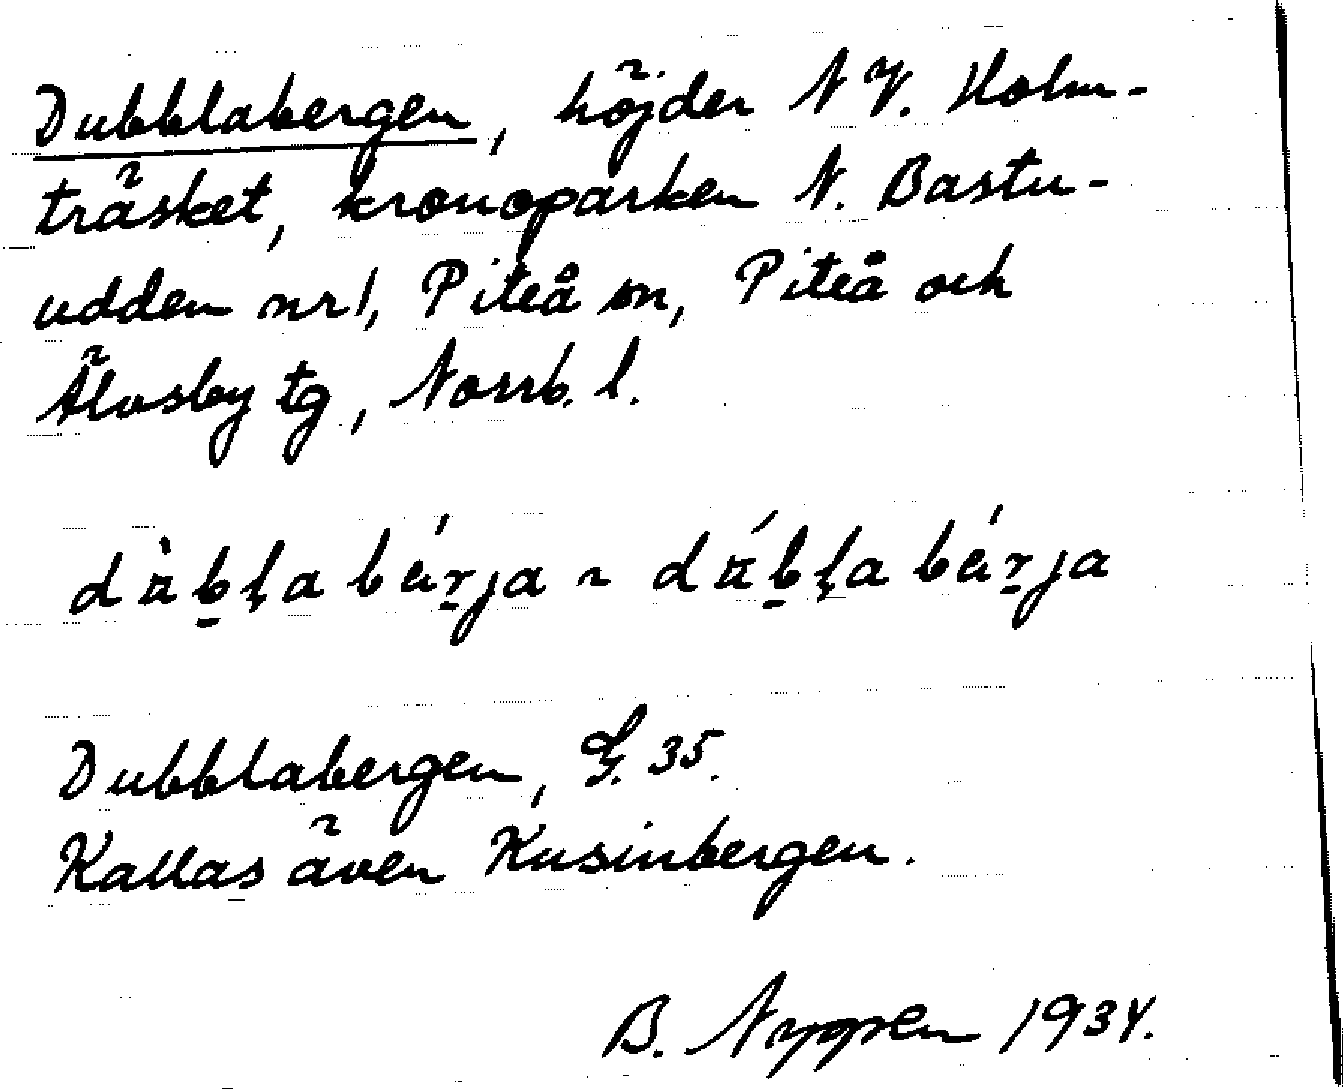 Dubblabergen, höjder NV. Holm-
träsket, kronoparken N. Bastu-
udden nr 1, Piteå sn, Piteå och
Älvsby tg, Norrb. l.
Dubblabergen, G. 35.
Kallas även Kusinbergen.
B. 1934.